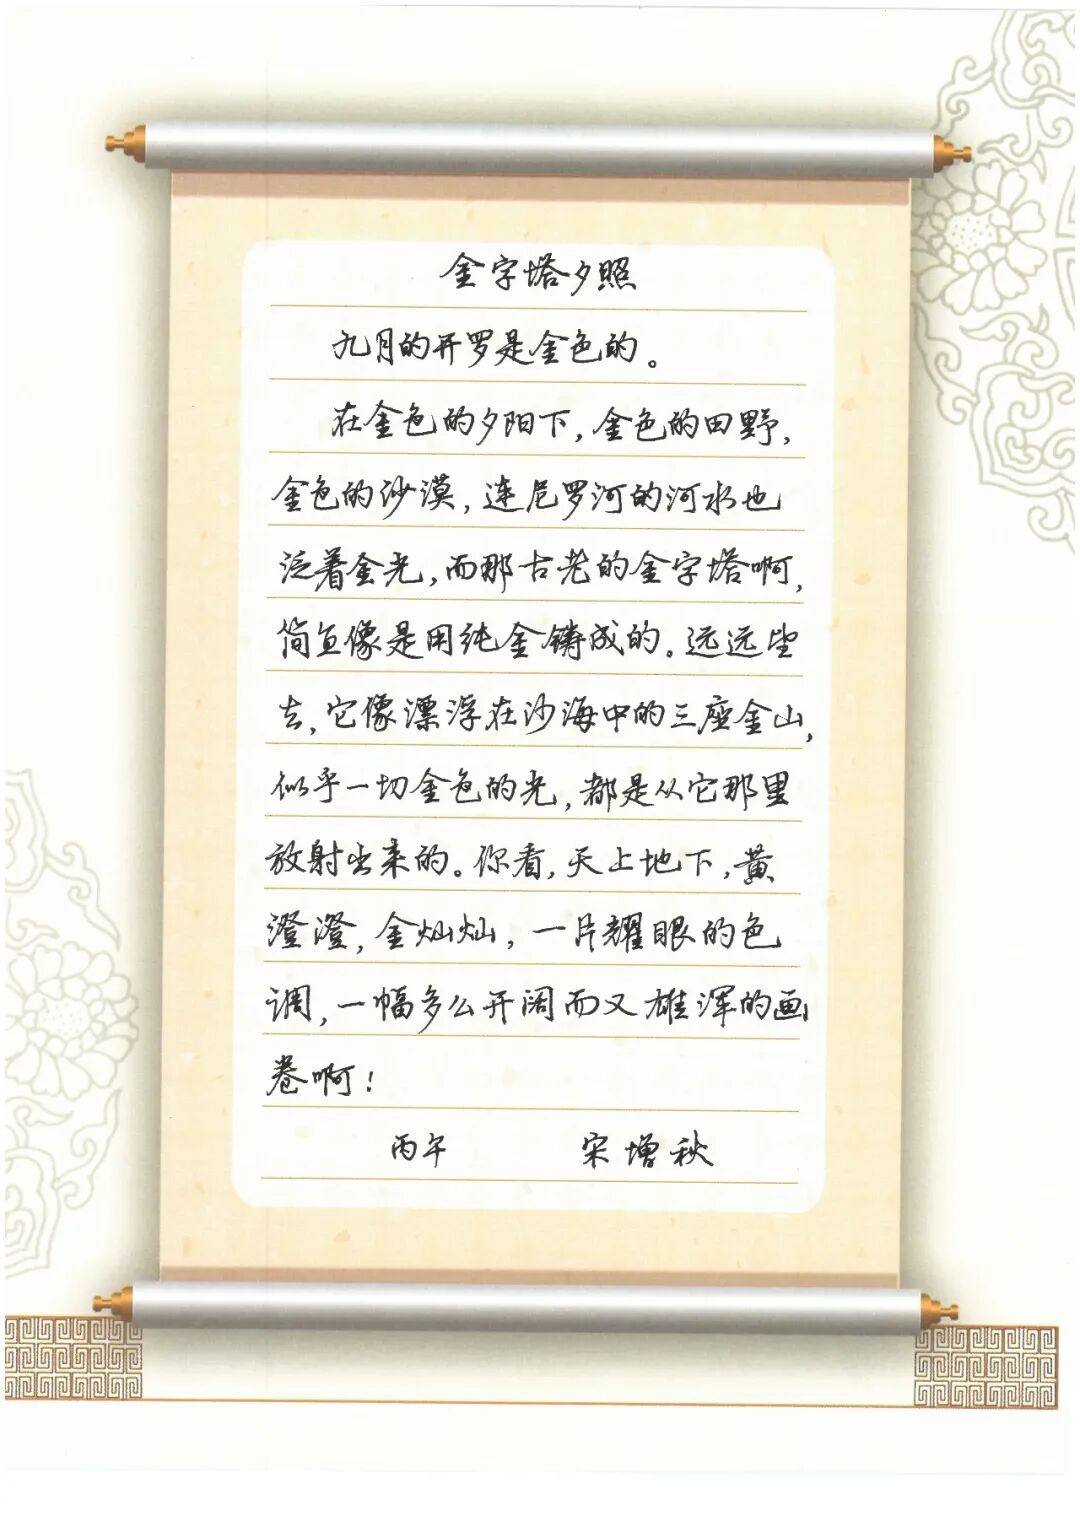 金字塔夕照
九月的开罗是金色的。
在金色的夕阳下,金色的田野,
金色的沙漠,连尼罗河的河水也
泛着金光,而那古老的金字塔啊,
简直像是用纯金铸成的。远远望
去,它像漂浮在沙海中的三座金山,
似乎一切金色的光,都是从它那里
放射出来的。你看,天上地下,黄
澄澄,金灿灿,一片耀眼的色
调,一幅多么开阔而又雄浑的画
卷啊!
丙午 宋增秋